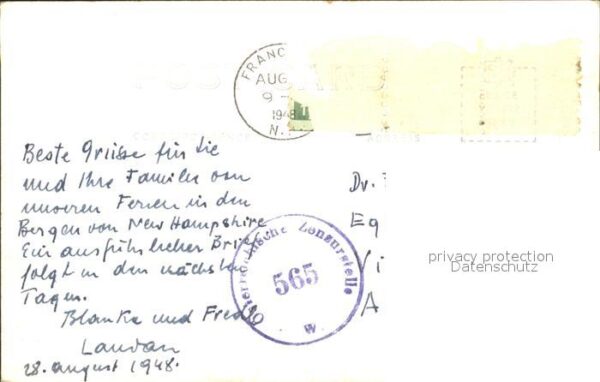 FRANC
AUG
9 -
1948
N.
POST CARD
Beste Grüsse für Sie
und Ihre Familie von
unseren Ferien in den
Bergen von New Hampshire
Ein ausführlicher Brief
folgt in den nächsten
Tagen.
Blanka und Fred
Landau
28. august 1948.
Dr.
Eg
Vi
A
Österreichische Zensurstelle
565
W
privacy protection
Datenschutz